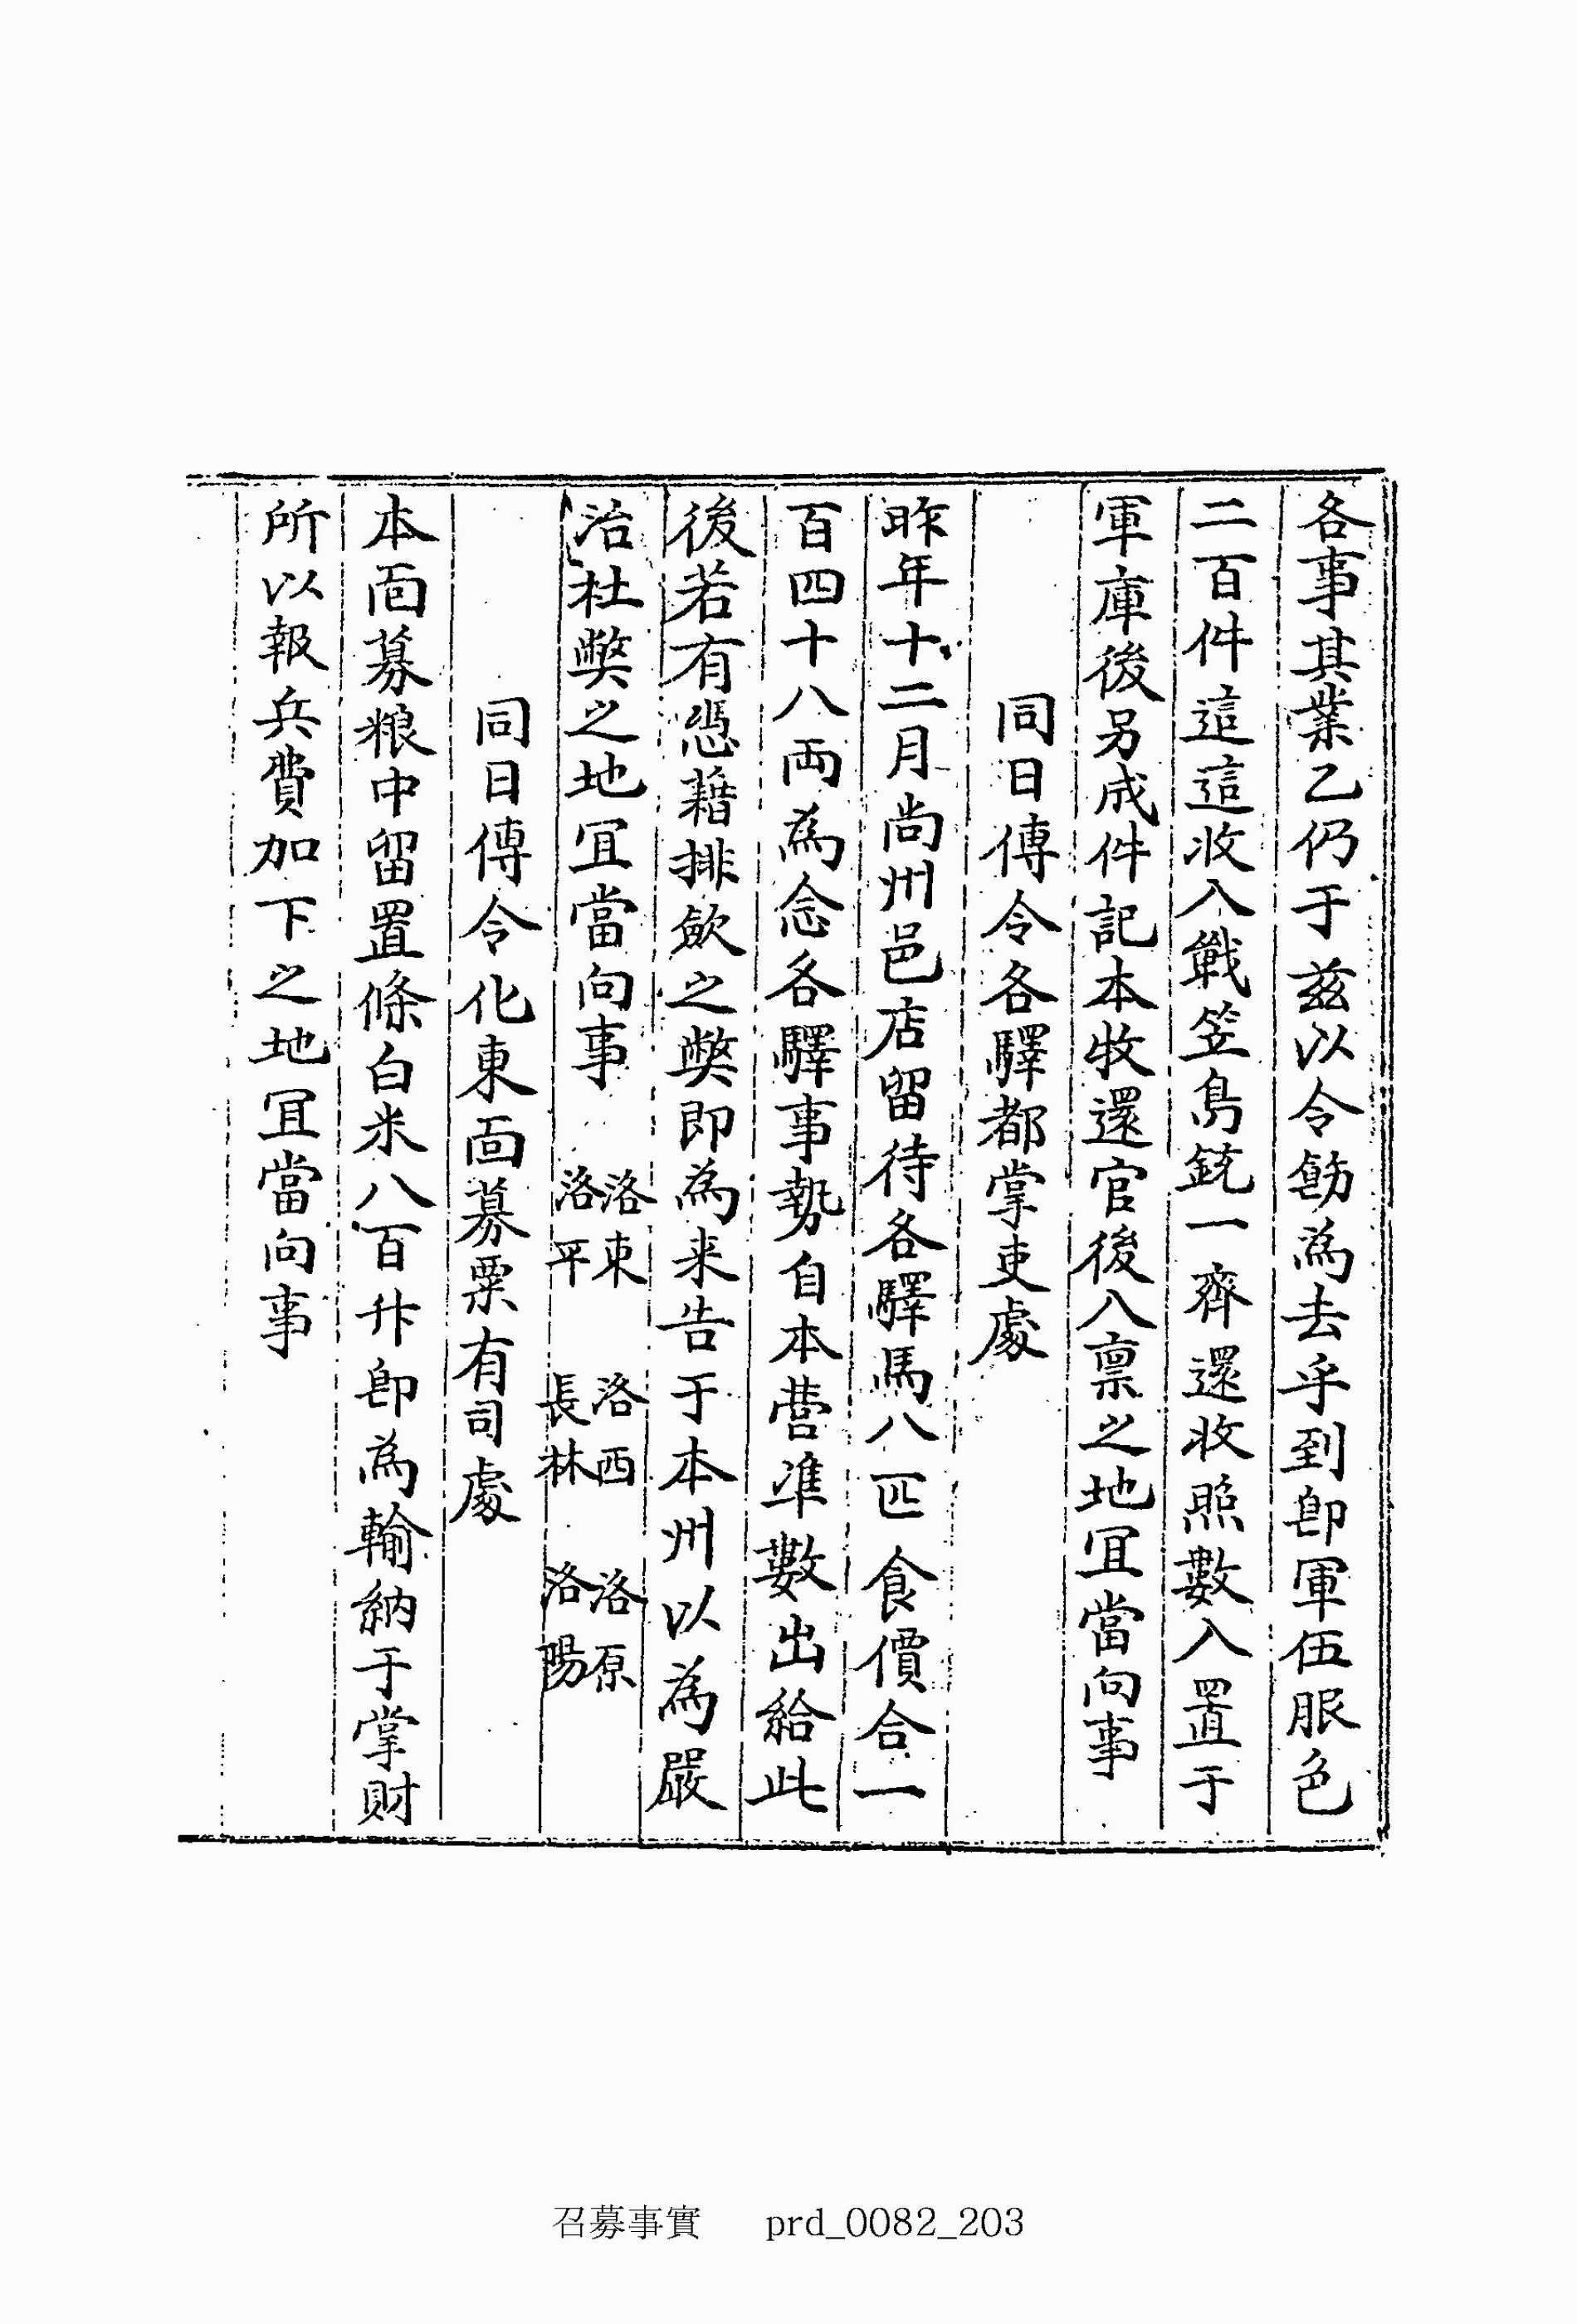 各事其業乙仍于兹以令飭爲去乎到卽軍伍服色
二百件這這收入戰笠鳥銃一齊還收照數入置于
軍庫後另成件記本牧還官後入禀之地冝當向事
同日傳令各驛都掌吏處
昨年十二月尙州邑店留待各驛馬八匹食價合一
百四十八両為念各驛事勢自本營準數出給此
後若有憑藉排斂之獘即為来告于本州以為嚴
治杜獘之地冝當向事 洛東 洛西 洛原
洛平 長林 洛陽
同日傳令化東面募粟有司處
本面募粮中留置條白米八百升卽為輸納于掌財
所以報兵費加下之地冝當向事
召募事實 prd_0082_203